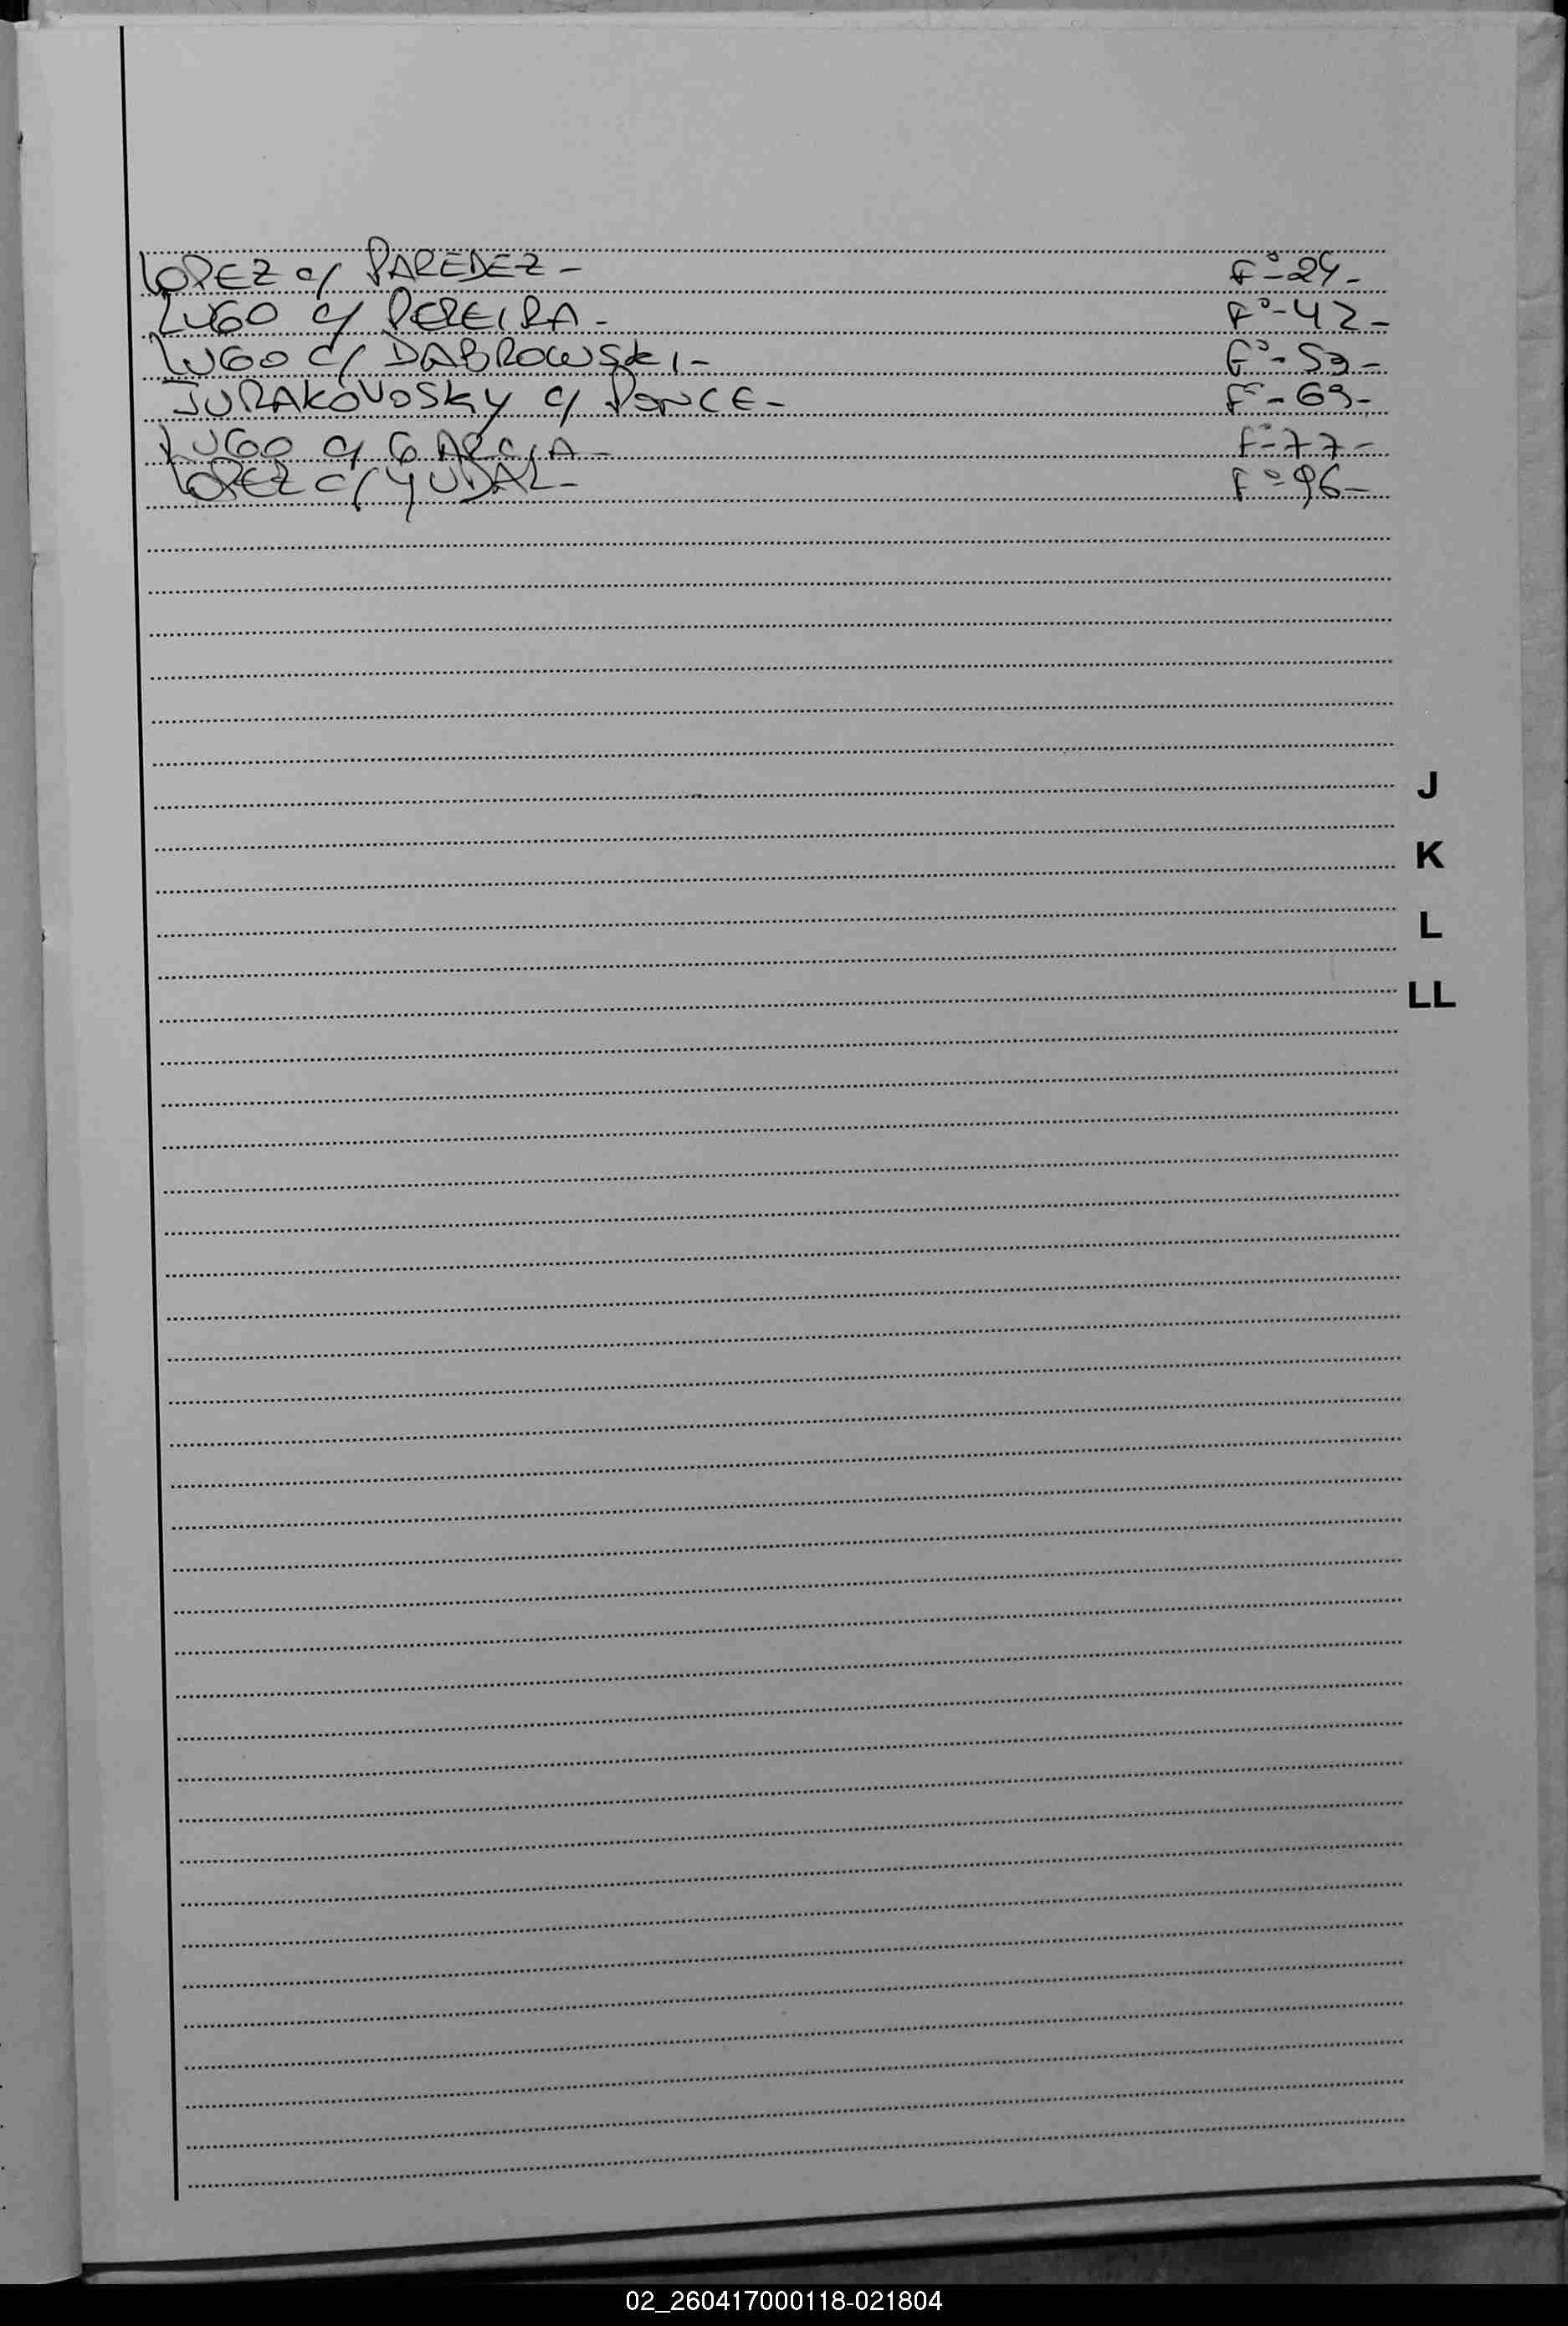 LOPEZ c/ PAREDEZ - F° - 24 -
LUGO c/ PEREIRA - F° - 42 -
LUGO C/ DABROWSKI - F° - 53 -
JURAKOVOSKY c/ PONCE - F° - 69 -
LUGO c/ GARCIA - F° - 77 -
LOPEZ C/ YUDAL - F° - 96 -
J
K
L
LL
02_260417000118-021804